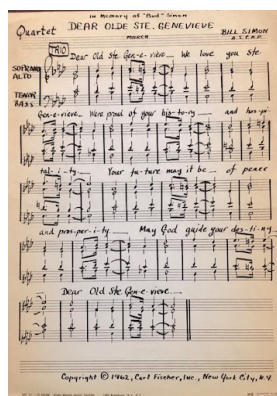 In Memory of "Bud" Simon
Quartet
DEAR OLDE STE. GENEVIEVE
BILL SIMON
MARCH
A.S.C.A.P.
TRIO
Dear Old Ste. Gen-e-vieve We love you Ste.
SOPRANO
ALTO
TENOR
BASS
Gen-e-vieve Were proud of your his-to-ry and hos-pi-
tal-i-ty Your fu-ture may it be of peace
and pros-per-i-ty May God guide your des-ti-ny
Dear Old Ste Gen-e-vieve
Copyright © 1962, Carl Fischer, Inc., New York City, N.Y.